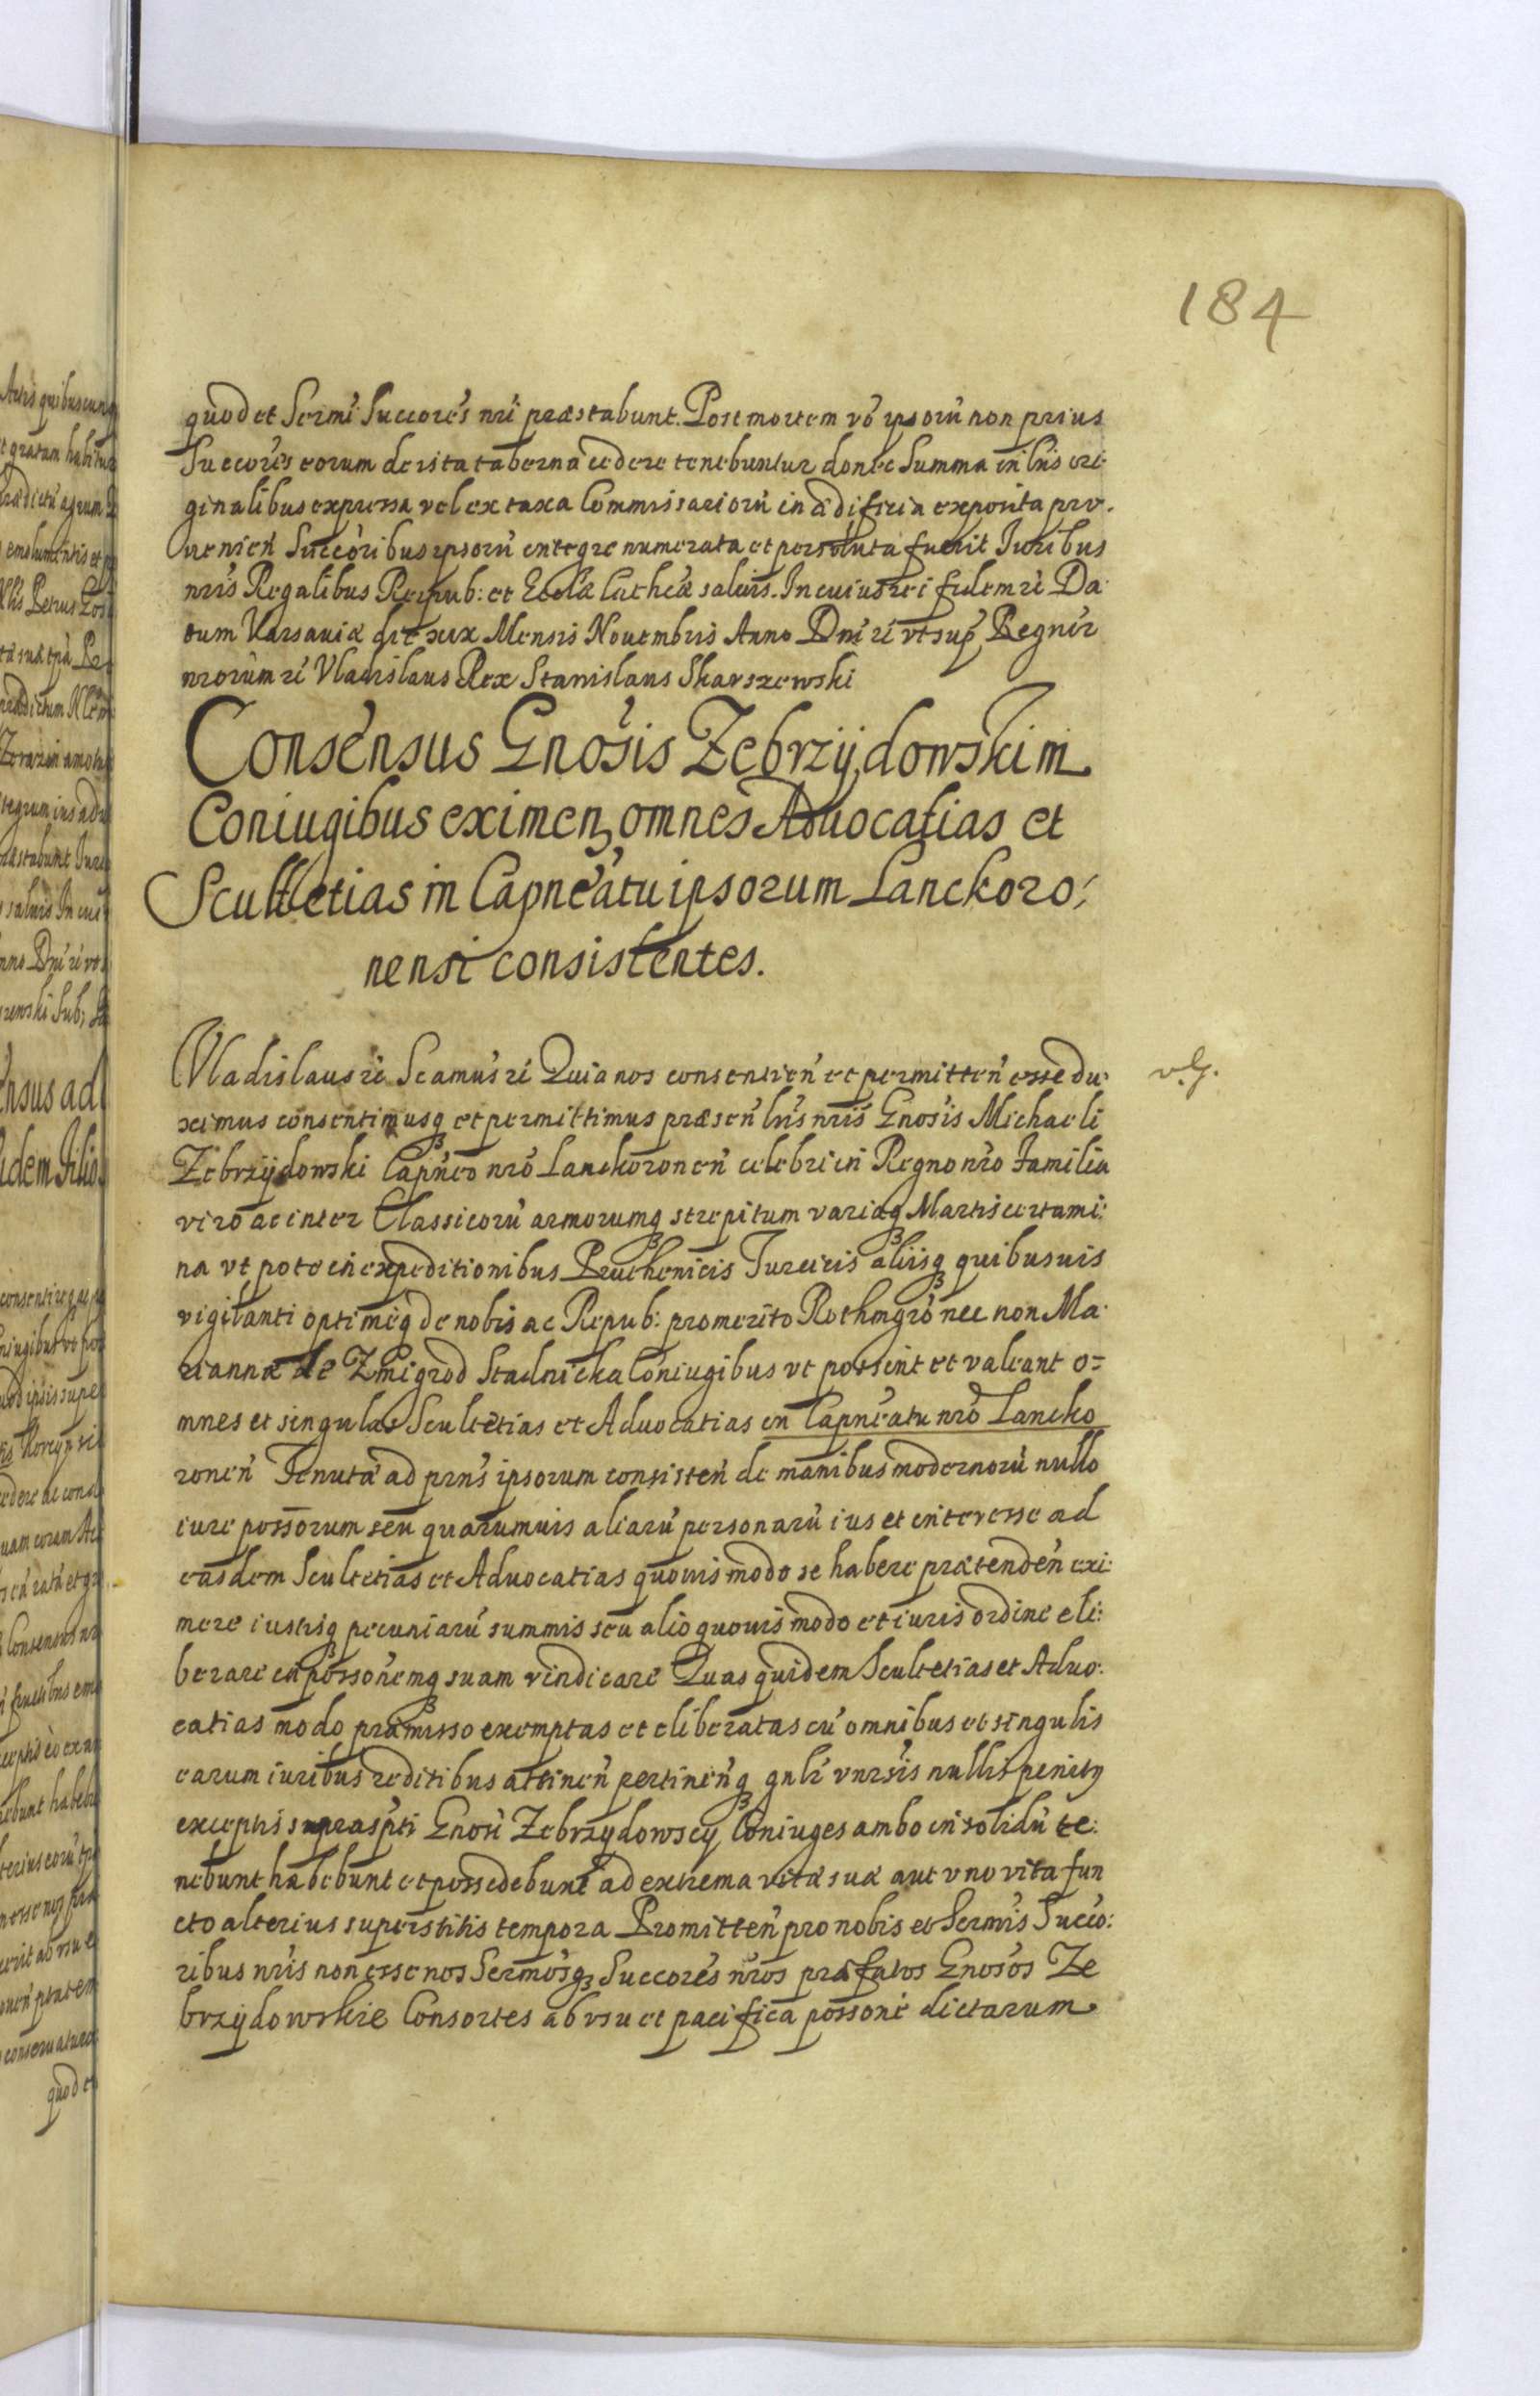 184
quod et Sermi Succores nri præstabunt. Post mortem vo ipsorũ non prius
Succores eorum de ista taberna cedere tenebuntur donec Summa in lris ori
ginalibus expressa vel ex taxa Commissariorũ in ædificia exposita pro.
uenien Succoribus ipsorũ integre numerata et persoluta fuerit Iuribus
nris Regalibus Reipub: et Ecclæ Cathcæ saluis. In cuius rei fidem rẽ Da:
tum Varsauiæ die xix Mensis Nouembris Anno Dni rẽ vt sup Regnor
nrorum rẽ Vladislaus Rex Stanislaus Skarszewski
Consensus Gnosis Zebrzÿdowskim
Coniugibus eximen omnes Aduocatias et
Scultetias in Capneatu ipsorum Lanckoro:
nensi consistentes.
Vladislaus rẽ Seamus rẽ Quia nos consentien et permitten esse du:
ximus consentimusq et permittimus præsen lris nris Gnosis Michaeli
Zebrzÿdowski Capneo nro Lanckoronen celebri in Regno nro Familia
viro ac inter Classicorũ armorumq strepitum variaq Martis certami:
na vt pote in expeditionibus Pruthenicis Turcicis aliisq quibusuis
vigilanti optimeq de nobis ac Repub: promerito Rothmgro nec non Ma:
riannæ de Zmigrod Stadnicka Coniugibus vt possint et valeant o=
mnes et singulas Scultetias et Aduocatias in Capneatu nro Lancko
ronen Tenutæ ad prns ipsorum consisten de manibus modernorũ nullo
iure possorum seu quarumuis aliarũ personarũ ius et interesse ad
easdem Scultetias et Aduocatias quouis modo se habere prætenden exi:
mere iustisq pecuniarũ summis seu alio quouis modo et iuris ordine eli:
berare in possonemq suam vindicare Quas quidem Scultetias et Aduo:
catias modo præmisso exemptas et eliberatas cũ omnibus et singulis
earum iuribus reditibus attinen pertinenq gnlr vnrsis nullis penitq
exceptis suprasrpti Gnosi Zebrzydowscy Coniuges ambo in solidũ te:
nebunt habebunt et possedebunt ad extrema vitæ suæ aut vno vita fun
cto alterius superstitis tempora Promitten pro nobis et Sermis Succo:
ribus nris non esse nos Sermosq Succores nros præfatos Gnosos Ze
brzÿdowskie Consortes ab vsu et pacifica possone dictarum